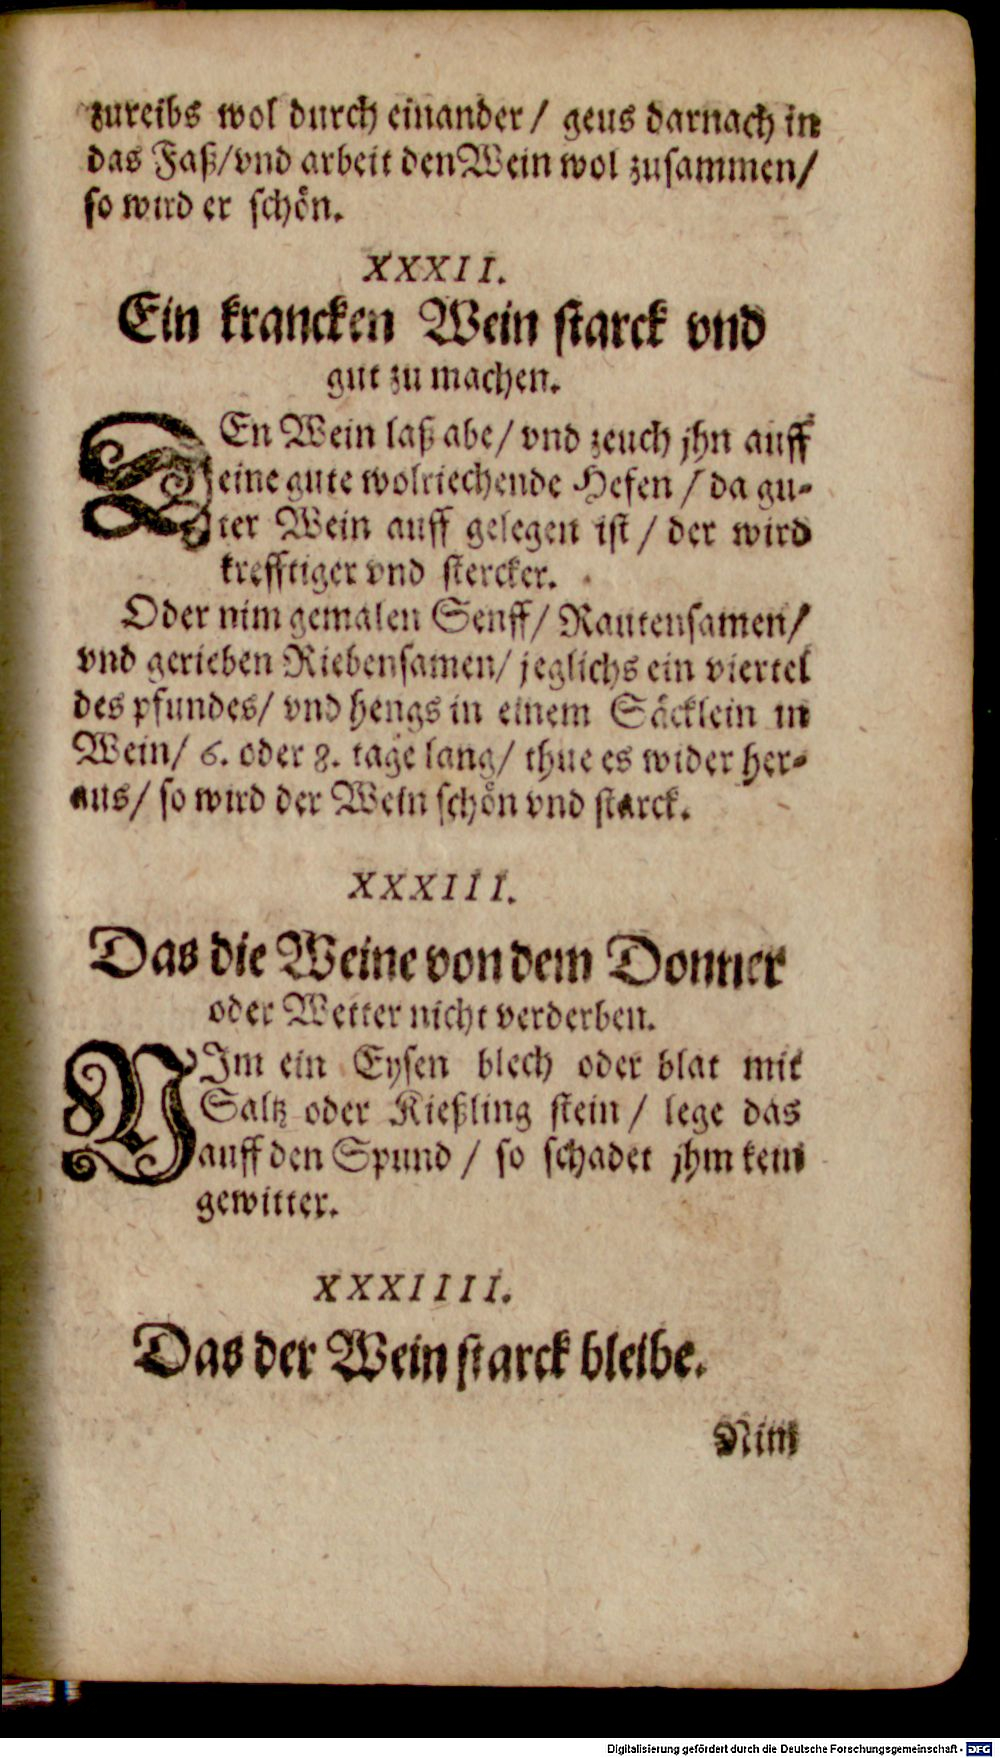 zureibs wol durch einander / geus darnach in
das Faß / vnd arbeit den Wein wol zusammen /
so wird er schön.
XXXII.
Ein krancken Wein starck vnd
gut zu machen.
DEn Wein laß abe / vnd zeuch jhn auff
eine gute wolriechende Hefen / da gu-
ter Wein auff gelegen ist / der wird
krefftiger vnd stercker.
Oder nim gemalen Senff / Rautensamen /
vnd gerieben Riebensamen / jeglichs ein viertel
des pfundes / vnd hengs in einem Säcklein in
Wein / 6. oder 8. tage lang / thue es wider her-
aus / so wird der Wein schön vnd starck.
XXXIII.
Das die Weine von dem Donner
oder Wetter nicht verderben.
NIm ein Eysen blech oder blat mit
Saltz oder Kießling stein / lege das
auff den Spund / so schadet jhm kein
gewitter.
XXXIIII.
Das der Wein starck bleibe.
Nim
Digitalisierung gefördert durch die Deutsche Forschungsgemeinschaft - DFG